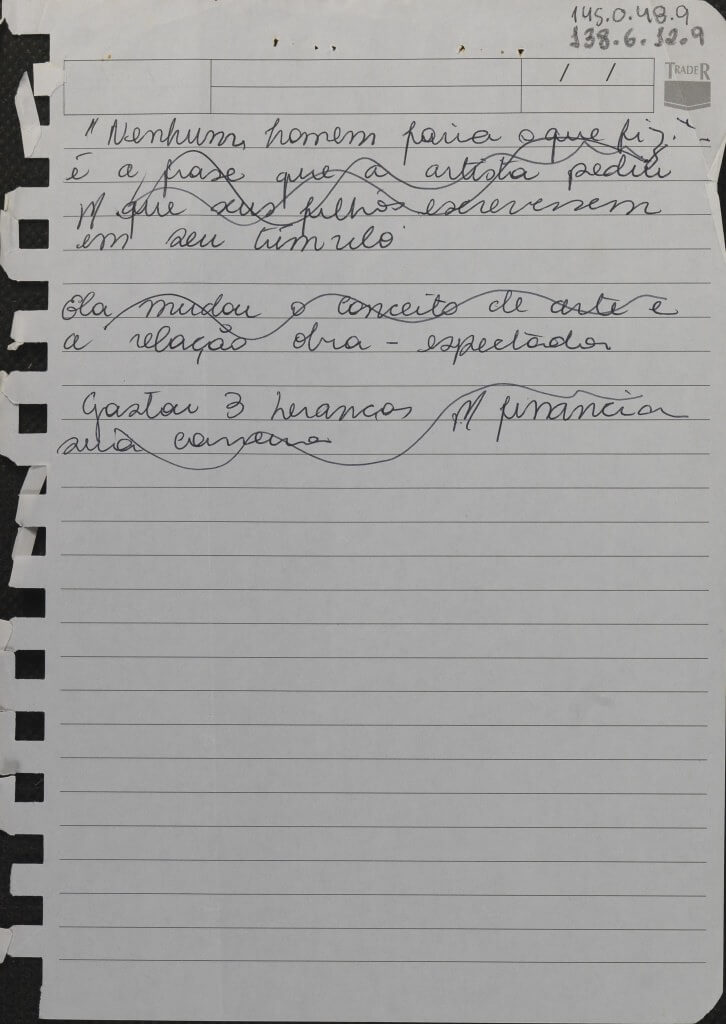 145.0.48.9
138.6.12.9
/ /
TRADER
"Nenhum homem faria o que fiz." -
é a frase que a artista pediu
p/ que seus filhos escrevessem
em seu túmulo
Ela mudou o conceito de arte e
a relação obra - espectador
Gastou 3 heranças p/ financiar
sua carreira